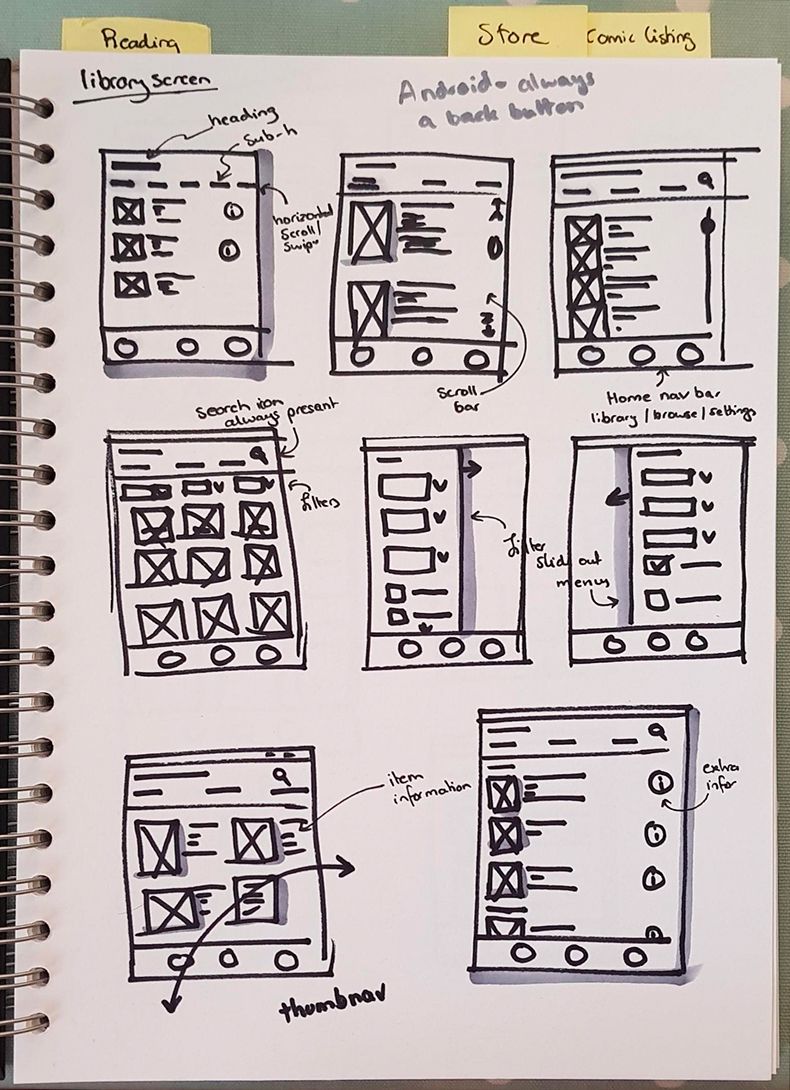 Reading
Store
Comic listing
library screen
Android - always
a back button
heading
Sub-h
horizontal
Scroll/
Swipe
Scroll
bar
Home nav bar
library / browse / settings
Search icon
always present
filters
filter
slide out
menus
item
information
extra
infor
thumbnav